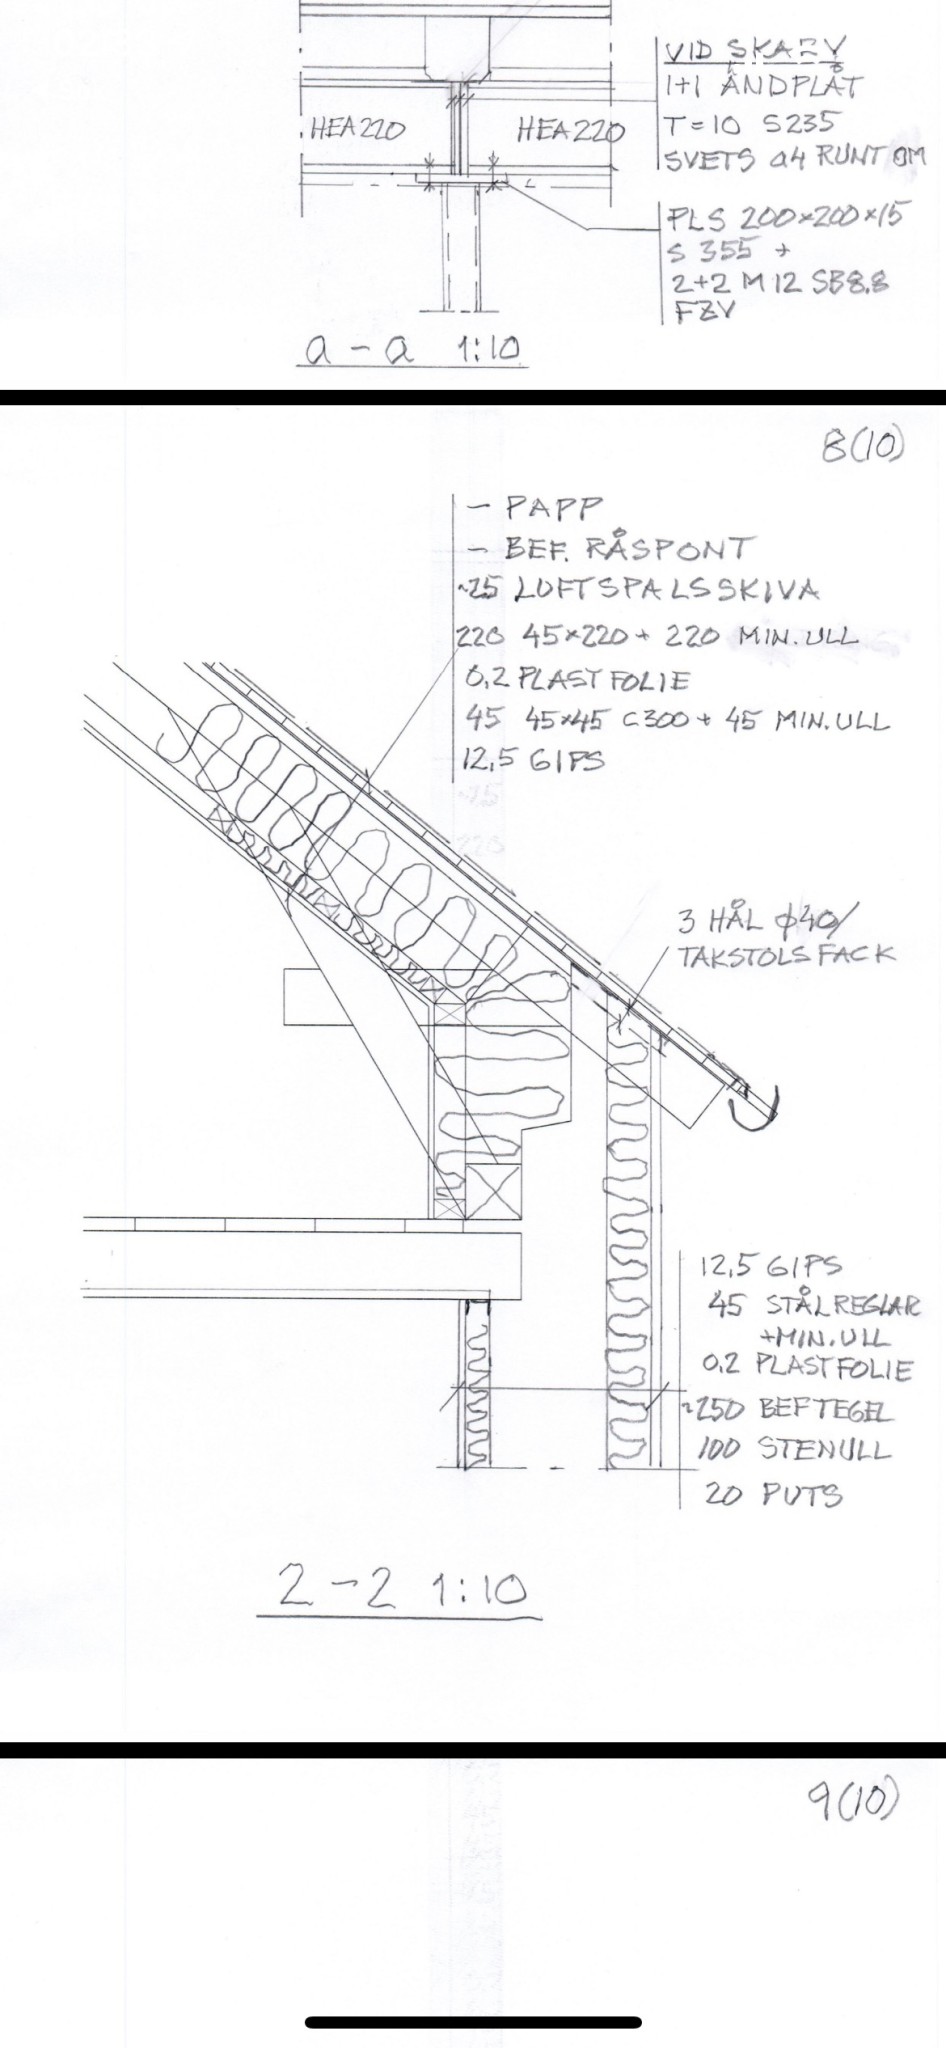 VID SKARV
1+1 ÄNDPLÅT
HEA220
HEA220
T=10 S235
SVETS a4 RUNT OM
PLS 200×200×15
S 355 +
2+2 M12 SB8,8
FZV
a - a 1:10
8(10)
- PAPP
- BEF. RÅSPONT
~25 LUFTSPALSSKIVA
220 45×220 + 220 MIN. ULL
0,2 PLASTFOLIE
45 45×45 C300 + 45 MIN. ULL
12,5 GIPS
3 HÅL ϕ40/
TAKSTOLSFACK
12,5 GIPS
45 STÅLREGLAR
+MIN. ULL
0,2 PLASTFOLIE
~250 BEF TEGEL
100 STENULL
20 PUTS
2 - 2 1:10
9(10)